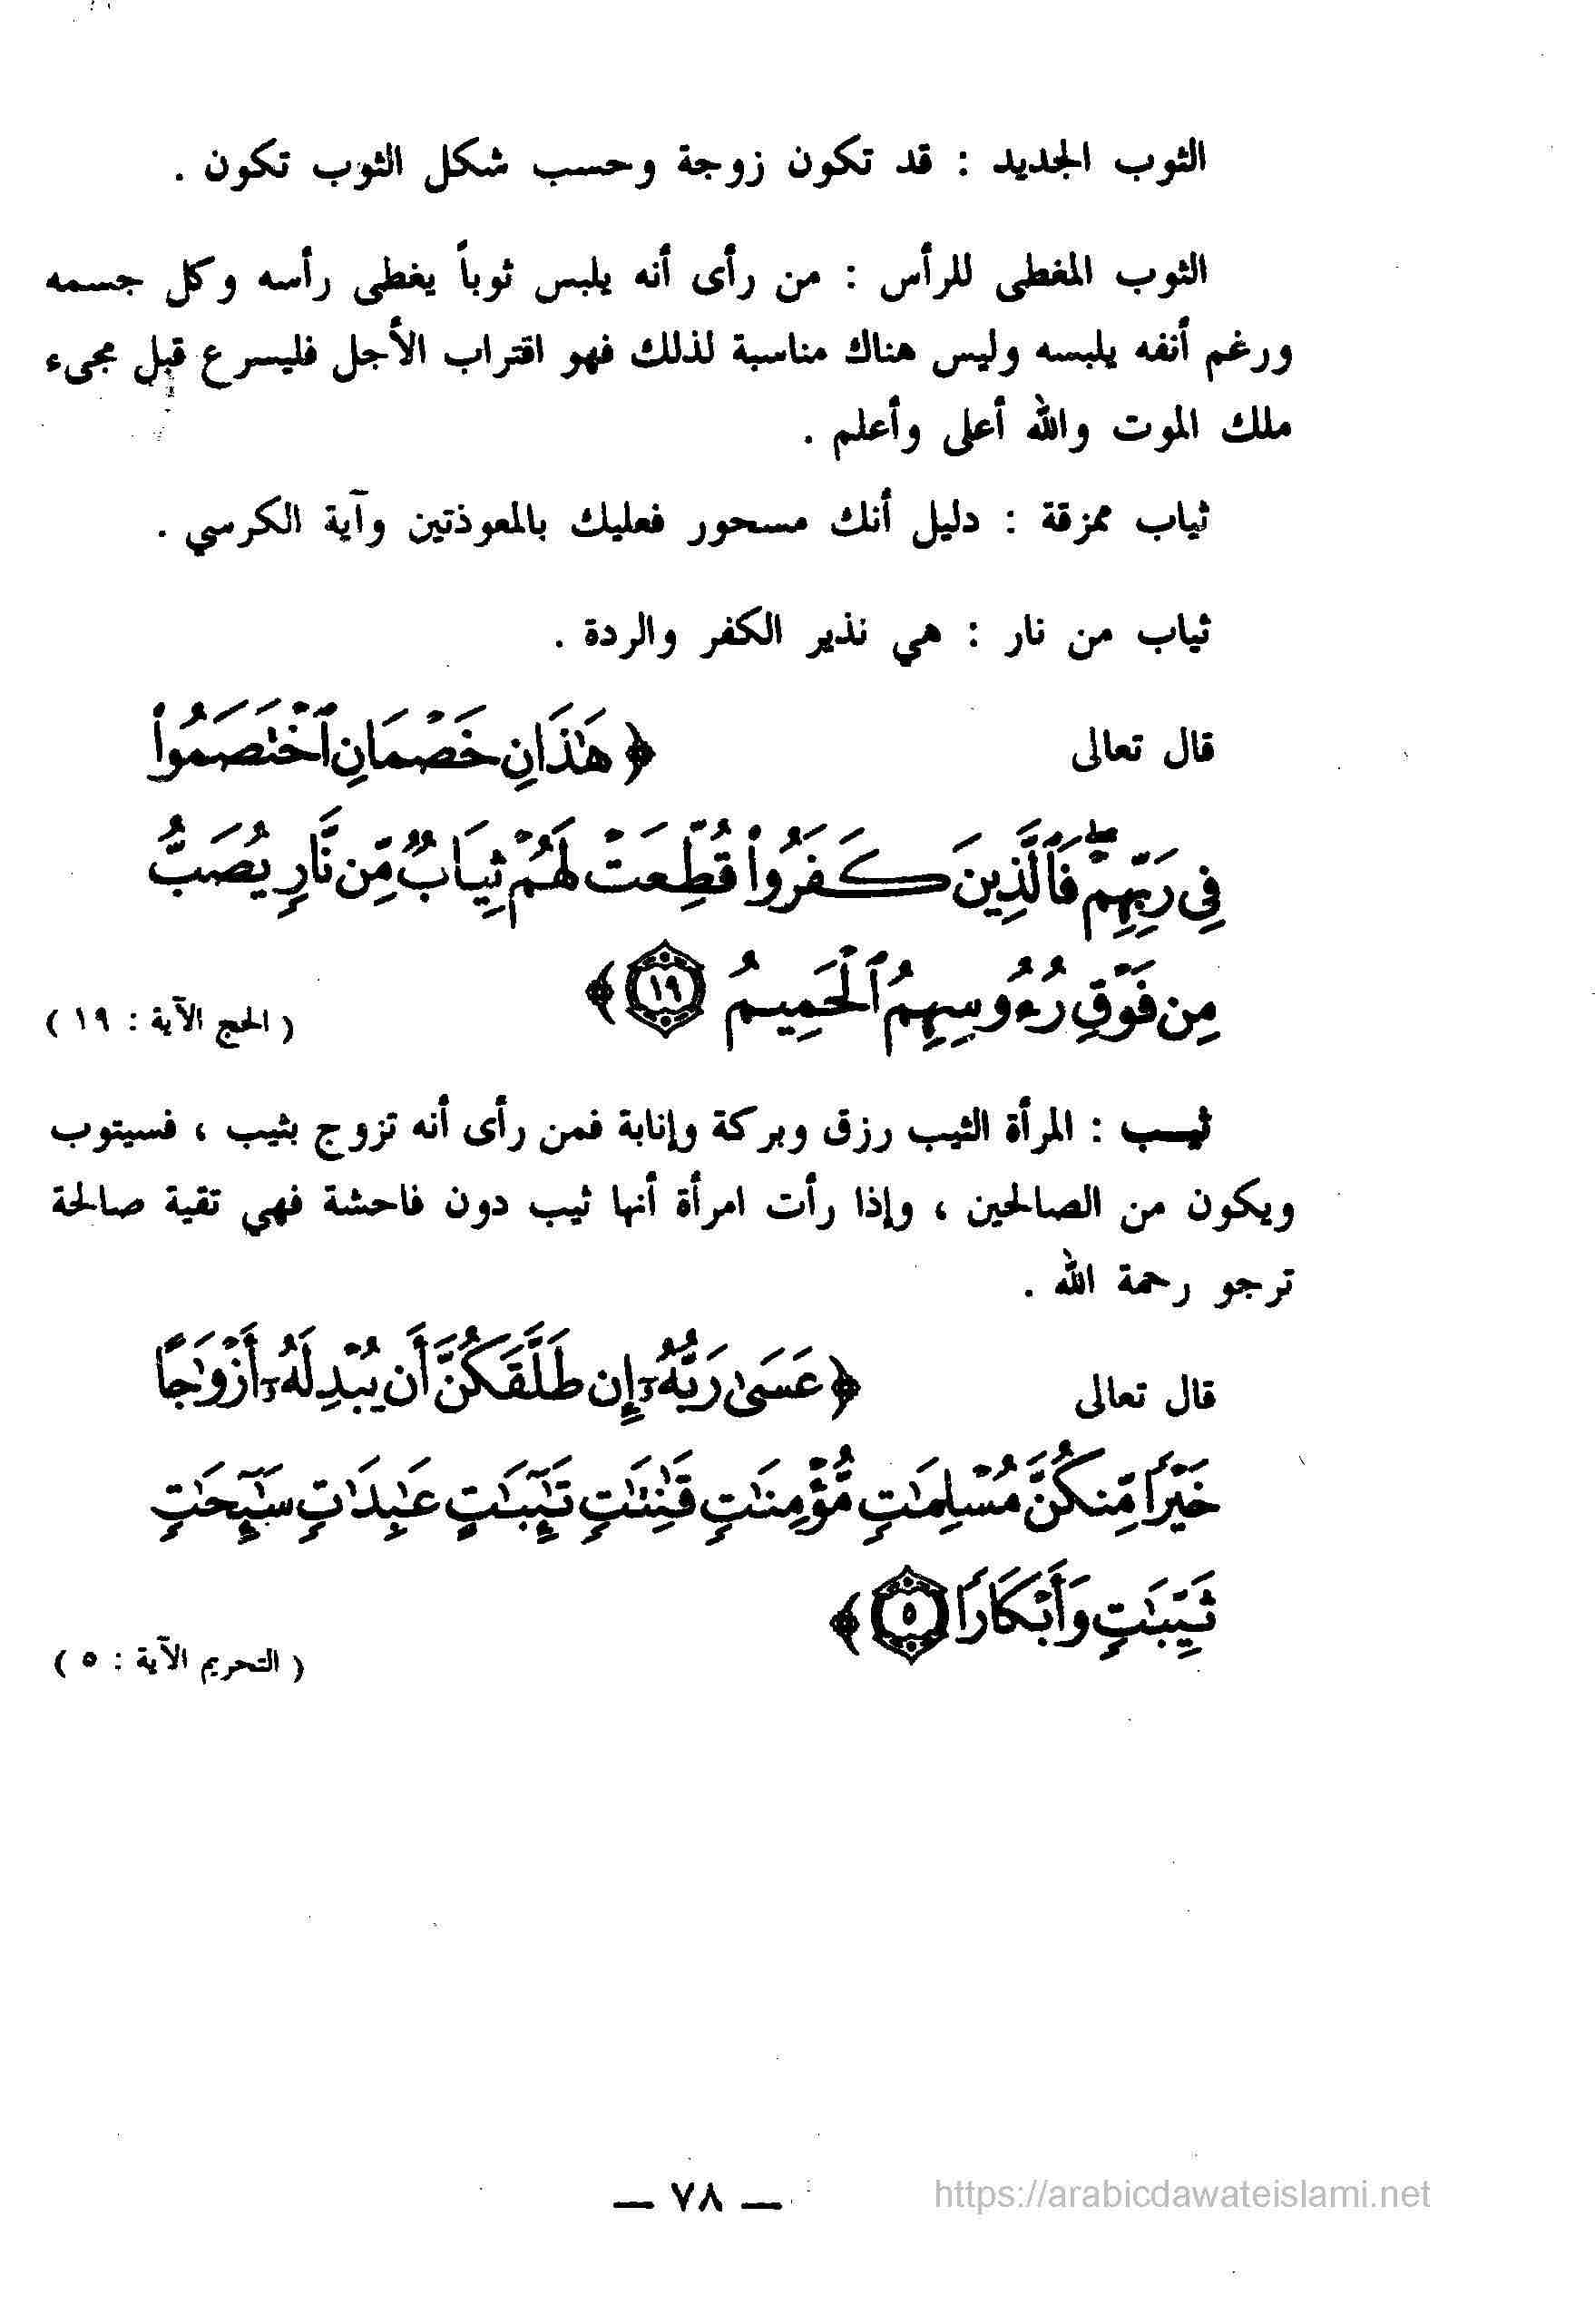 الثوب الجديد : قد تكون زوجة وحسب شكل الثوب تكون .
الثوب المغطى للرأس : من رأى أنه يلبس ثوباً يغطى رأسه وكل جسمه
ورغم أنفه يلبسه وليس هناك مناسبة لذلك فهو اقتراب الأجل فليسرع قبل مجىء
ملك الموت والله أعلى وأعلم .
ثياب ممزقة : دليل أنك مسحور فعليك بالمعوذتين وآية الكرسي .
ثياب من نار : هي نذير الكفر والردة .
قال تعالى ﴿ هَٰذَانِ خَصْمَانِ ٱخْتَصَمُوا۟
فِى رَبِّهِمْ ۖ فَٱلَّذِينَ كَفَرُوا۟ قُطِّعَتْ لَهُمْ ثِيَابٌ مِّن نَّارٍ يُصَبُّ
مِن فَوْقِ رُءُوسِهِمُ ٱلْحَمِيمُ ١٩ ﴾ ( الحج الآية : ١٩ )
ثيـــب : المرأة الثيب رزق وبركة وإنابة فمن رأى أنه تزوج بثيب ، فسيتوب
ويكون من الصالحين ، وإذا رأت امرأة أنها ثيب دون فاحشة فهي تقية صالحة
ترجو رحمة الله .
قال تعالى ﴿ عَسَىٰ رَبُّهُۥٓ إِن طَلَّقَكُنَّ أَن يُبْدِلَهُۥٓ أَزْوَٰجًا
خَيْرًا مِّنكُنَّ مُسْلِمَٰتٍ مُّؤْمِنَٰتٍ قَٰنِتَٰتٍ تَٰٓئِبَٰتٍ عَٰبِدَٰتٍ سَٰٓئِحَٰتٍ
ثَيِّبَٰتٍ وَأَبْكَارًا ٥ ﴾
( التحريم الآية : ٥ )
— ٧٨ —
https://arabicdawateislami.net